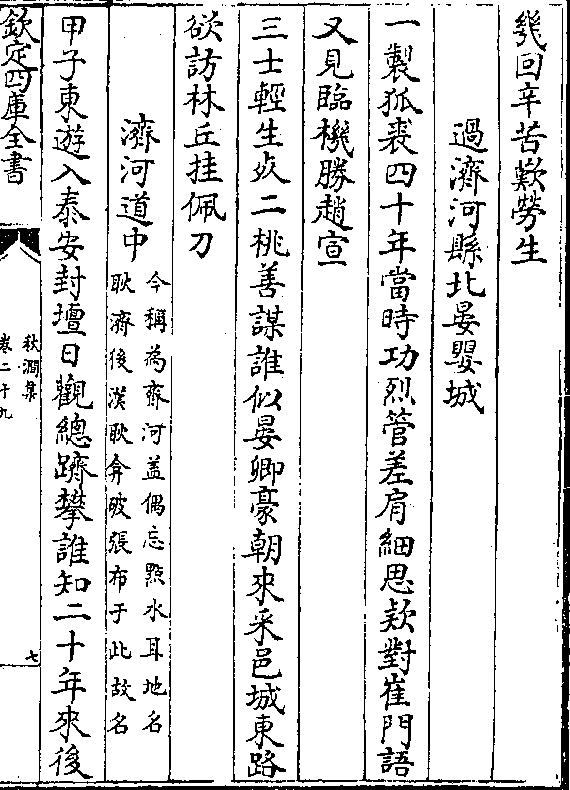 幾回辛苦歎勞生
過濟河縣北晏嬰城
一製狐裘四十年當時功烈管差肩細思欵對崔門語
又見臨機勝趙宣
三士輕生為二桃善謀誰似晏卿豪朝來采邑城東路
欲訪林丘挂佩刀
濟河道中
今稱為齊河盖偶忘㸃水耳地名
耿濟後漢耿弇破張布于此故名
甲子東遊入泰安封壇日觀總躋攀誰知二十年來後
欽定四庫全書
秋澗集
卷二十九
七